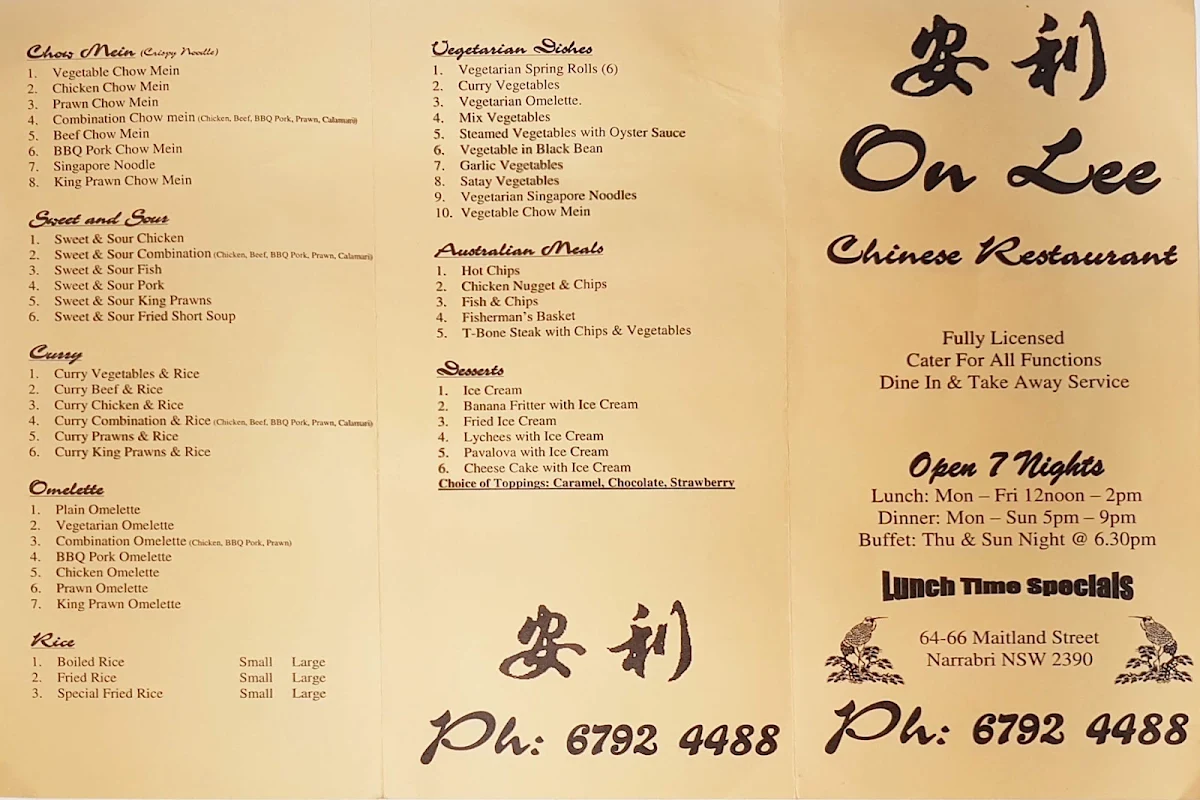 Chow Mein (Crispy Noodle)
1. Vegetable Chow Mein
2. Chicken Chow Mein
3. Prawn Chow Mein
4. Combination Chow mein (Chicken, Beef, BBQ Pork, Prawn, Calamari)
5. Beef Chow Mein
6. BBQ Pork Chow Mein
7. Singapore Noodle
8. King Prawn Chow Mein
Sweet and Sour
1. Sweet & Sour Chicken
2. Sweet & Sour Combination (Chicken, Beef, BBQ Pork, Prawn, Calamari)
3. Sweet & Sour Fish
4. Sweet & Sour Pork
5. Sweet & Sour King Prawns
6. Sweet & Sour Fried Short Soup
Curry
1. Curry Vegetables & Rice
2. Curry Beef & Rice
3. Curry Chicken & Rice
4. Curry Combination & Rice (Chicken, Beef, BBQ Pork, Prawn, Calamari)
5. Curry Prawns & Rice
6. Curry King Prawns & Rice
Omelette
1. Plain Omelette
2. Vegetarian Omelette
3. Combination Omelette (Chicken, BBQ Pork, Prawn)
4. BBQ Pork Omelette
5. Chicken Omelette
6. Prawn Omelette
7. King Prawn Omelette
Rice
1. Boiled Rice Small Large
2. Fried Rice Small Large
3. Special Fried Rice Small Large
Vegetarian Dishes
1. Vegetarian Spring Rolls (6)
2. Curry Vegetables
3. Vegetarian Omelette.
4. Mix Vegetables
5. Steamed Vegetables with Oyster Sauce
6. Vegetable in Black Bean
7. Garlic Vegetables
8. Satay Vegetables
9. Vegetarian Singapore Noodles
10. Vegetable Chow Mein
Australian Meals
1. Hot Chips
2. Chicken Nugget & Chips
3. Fish & Chips
4. Fisherman's Basket
5. T-Bone Steak with Chips & Vegetables
Desserts
1. Ice Cream
2. Banana Fritter with Ice Cream
3. Fried Ice Cream
4. Lychees with Ice Cream
5. Pavalova with Ice Cream
6. Cheese Cake with Ice Cream
Choice of Toppings: Caramel, Chocolate, Strawberry
安利
Ph: 6792 4488
安利
On Lee
Chinese Restaurant
Fully Licensed
Cater For All Functions
Dine In & Take Away Service
Open 7 Nights
Lunch: Mon – Fri 12noon – 2pm
Dinner: Mon – Sun 5pm – 9pm
Buffet: Thu & Sun Night @ 6.30pm
Lunch Time Specials
64-66 Maitland Street
Narrabri NSW 2390
Ph: 6792 4488